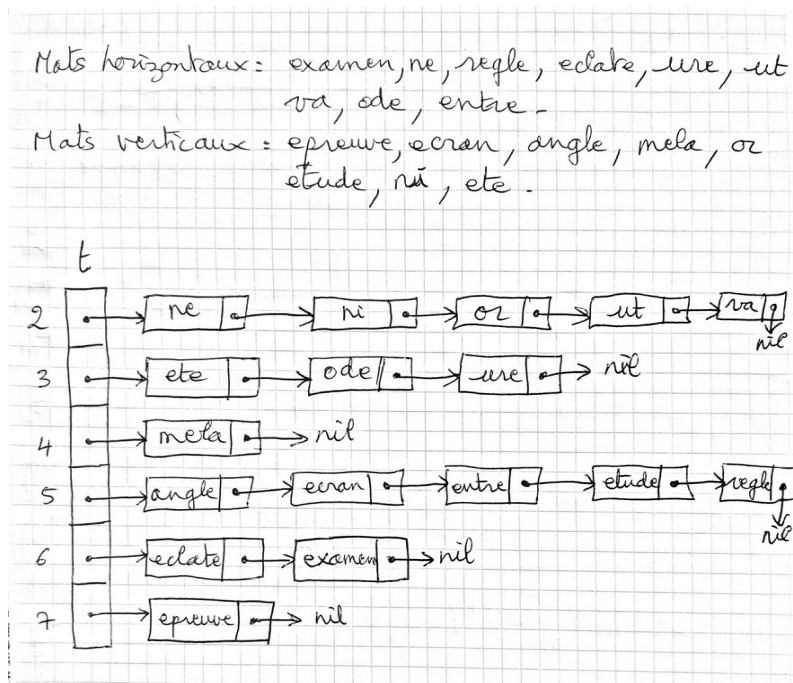 Mots horizontaux = examen, ne, regle, eclate, ure, ut
va, ode, entre.
Mots verticaux = epreuve, ecran, angle, mela, or
etude, ni, ete.
t
2 ne ni or ut va nil
3 ete ode ure nil
4 mela nil
5 angle ecran entre etude regle nil
6 eclate examen nil
7 epreuve nil